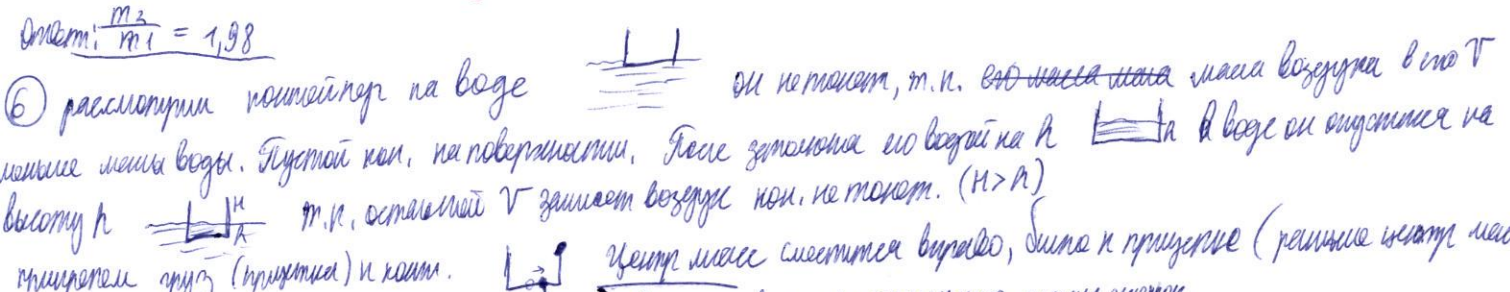 Ответ: m2/m1 = 1,98
6 рассмотрим контейнер на воде он не тонет, т.к. его масса мала масса воздуха в его V
меньше массы воды. Пустой кон. на поверхности. После заполнения его водой на h в воде он опустится на
высоту h H h т.к. остальной V занимает воздух кон. не тонет. (H>h)
прикрепим груз (прищепка) к конт. Центр масс сместится вправо, ближе к прищепке (раньше центр мас